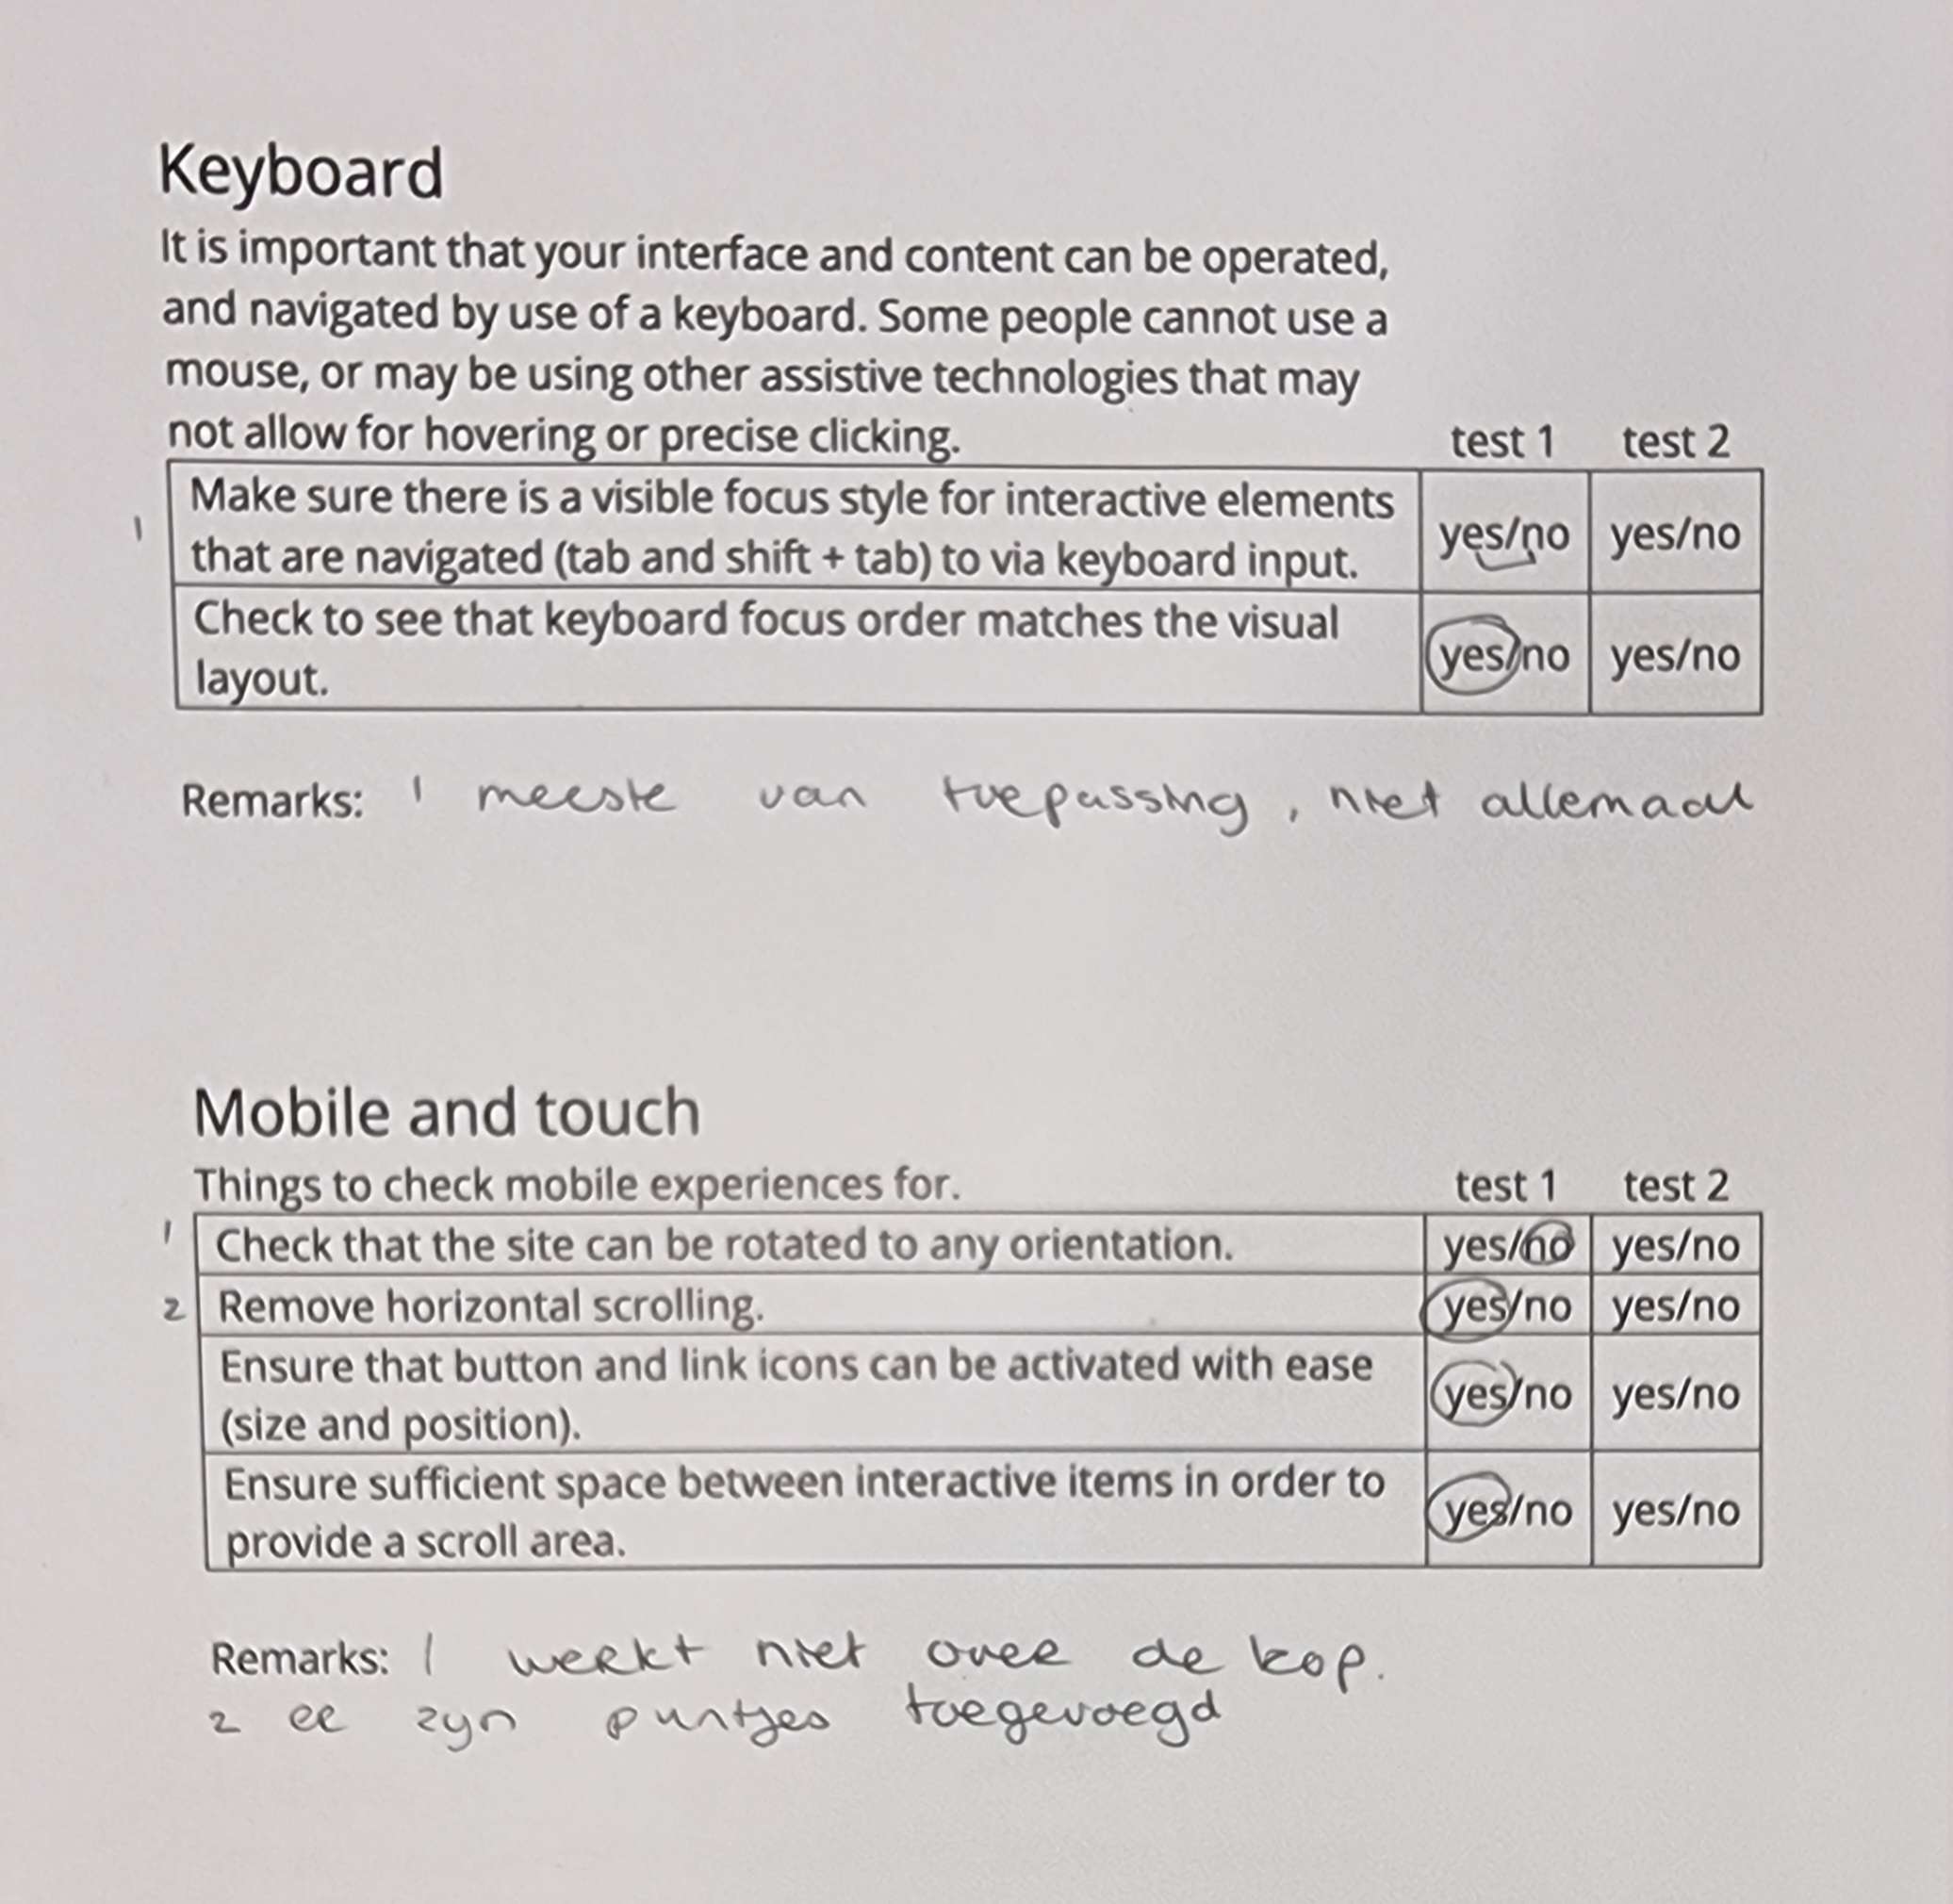 Keyboard
It is important that your interface and content can be operated,
and navigated by use of a keyboard. Some people cannot use a
mouse, or may be using other assistive technologies that may
not allow for hovering or precise clicking. test 1 test 2
1 Make sure there is a visible focus style for interactive elements
that are navigated (tab and shift + tab) to via keyboard input. yes/no yes/no
Check to see that keyboard focus order matches the visual
layout. yes/no yes/no
Remarks: 1 meeste van toepassing, niet allemaal
Mobile and touch
Things to check mobile experiences for. test 1 test 2
1 Check that the site can be rotated to any orientation. yes/no yes/no
2 Remove horizontal scrolling. yes/no yes/no
Ensure that button and link icons can be activated with ease
(size and position). yes/no yes/no
Ensure sufficient space between interactive items in order to
provide a scroll area. yes/no yes/no
Remarks: 1 werkt niet over de kop.
2 er zyn puntjes toegevoegd